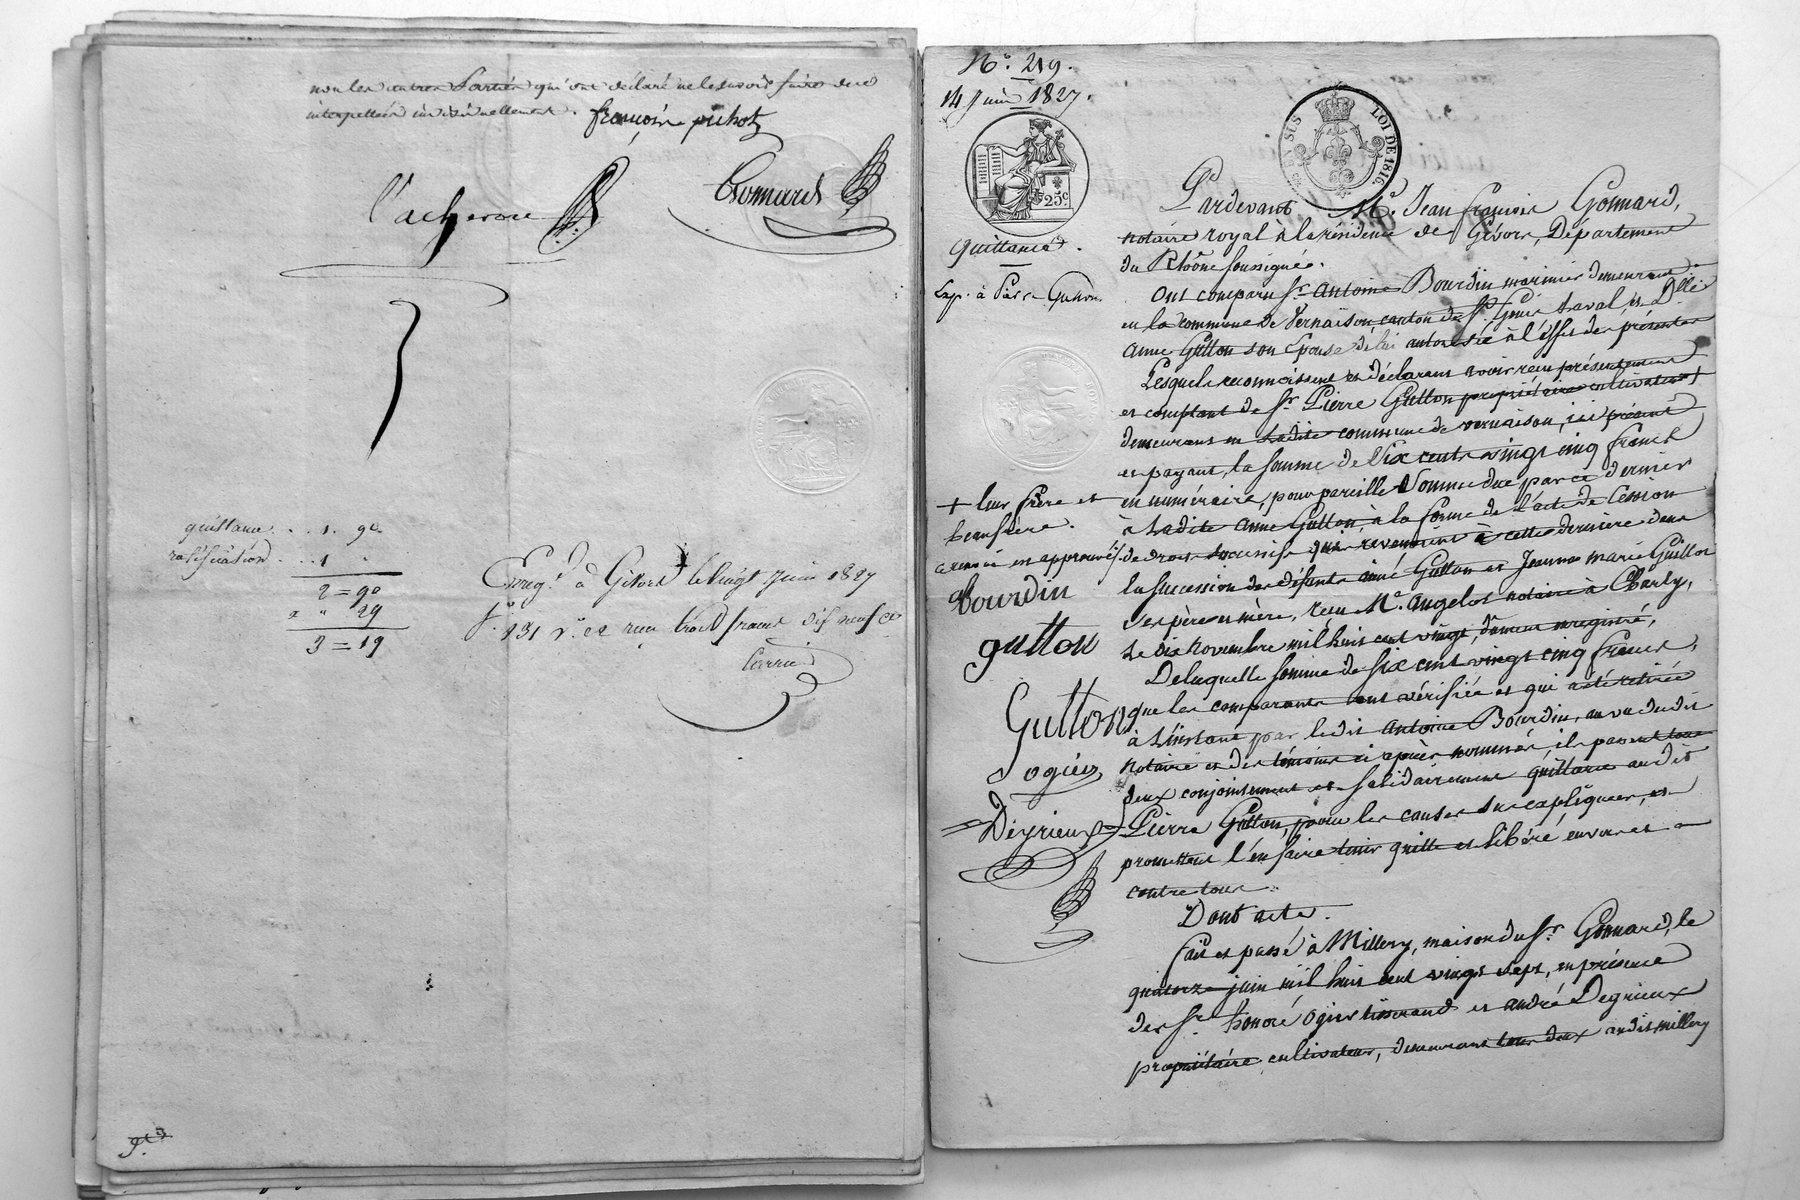 non les autres Parties qui ont déclaré ne le savoir faire de ce
interpellées individuellement.
françois pichot
Gonnard
quittance . . 1. 90
ratification . . 1 .
2 = 90
" 29
3 = 19
Enreg.t à Givors le vingt Juin 1827
f.o 131 r.o c 2 reçu trois francs dix neuf c.
N.o 219.
14 Juin 1827.
LOI DE 1816.
25c.
quittance.
Exp. à Pierre Gutton
Pardevant M.e Jean françois Gonnard,
notaire royal à la résidence de Givors, Département
du Rhône soussigné.
Ont comparu S.r Antoine Bourdin marinier demeurant
en la commune de Vernaison, canton de S.t Genis Laval, et D.lle
Anne Gutton son Epouse de lui autorisée à l'effet des présentes
Lesquels reconnaissent et déclarent avoir reçu présentement
et comptant de S.r Pierre Gutton propriétaire cultivateur +
demeurant en ladite commune de vernaison, ici présent
et payant, la somme de Six cents vingt cinq francs
+ leur frère et
beaufrère.
renvoi en approuvé
en numéraire, pour pareille Somme due par ce dernier
à Ladite Anne Gutton, à la forme de l'acte de Cession
de droits successifs qui revenaient à cette dernière dans
la succession des défunts aimé Gutton et Jeanne marie Guillot
ses père et mère, reçu M.e Angelot notaire à Charly,
Le dix Novembre mil huit cent vingt, dûment enregistré,
Bourdin
gutton
Gutton
ogier
Deyrieux
De laquelle Somme de six cent vingt cinq francs,
que les comparants ont vérifiée et qui a été retirée
à L'instant par ledit Antoine Bourdin, au vu dudit
notaire et des témoins ci après nommés, ils passent tous
deux conjointement et solidairement quittance audit
Pierre Gutton, pour les causes sus expliquées, et
promettent l'en faire tenir quitte et libéré envers et
contre tous.
Dont acte.
fait et passé à Millery, maison du S.r Gonnard, le
quatorze juin mil huit cent vingt sept, en présence
des S.rs honoré Ogier tisserand et andré Degrieux
propriétaire cultivateur, demeurant tous deux audit millery